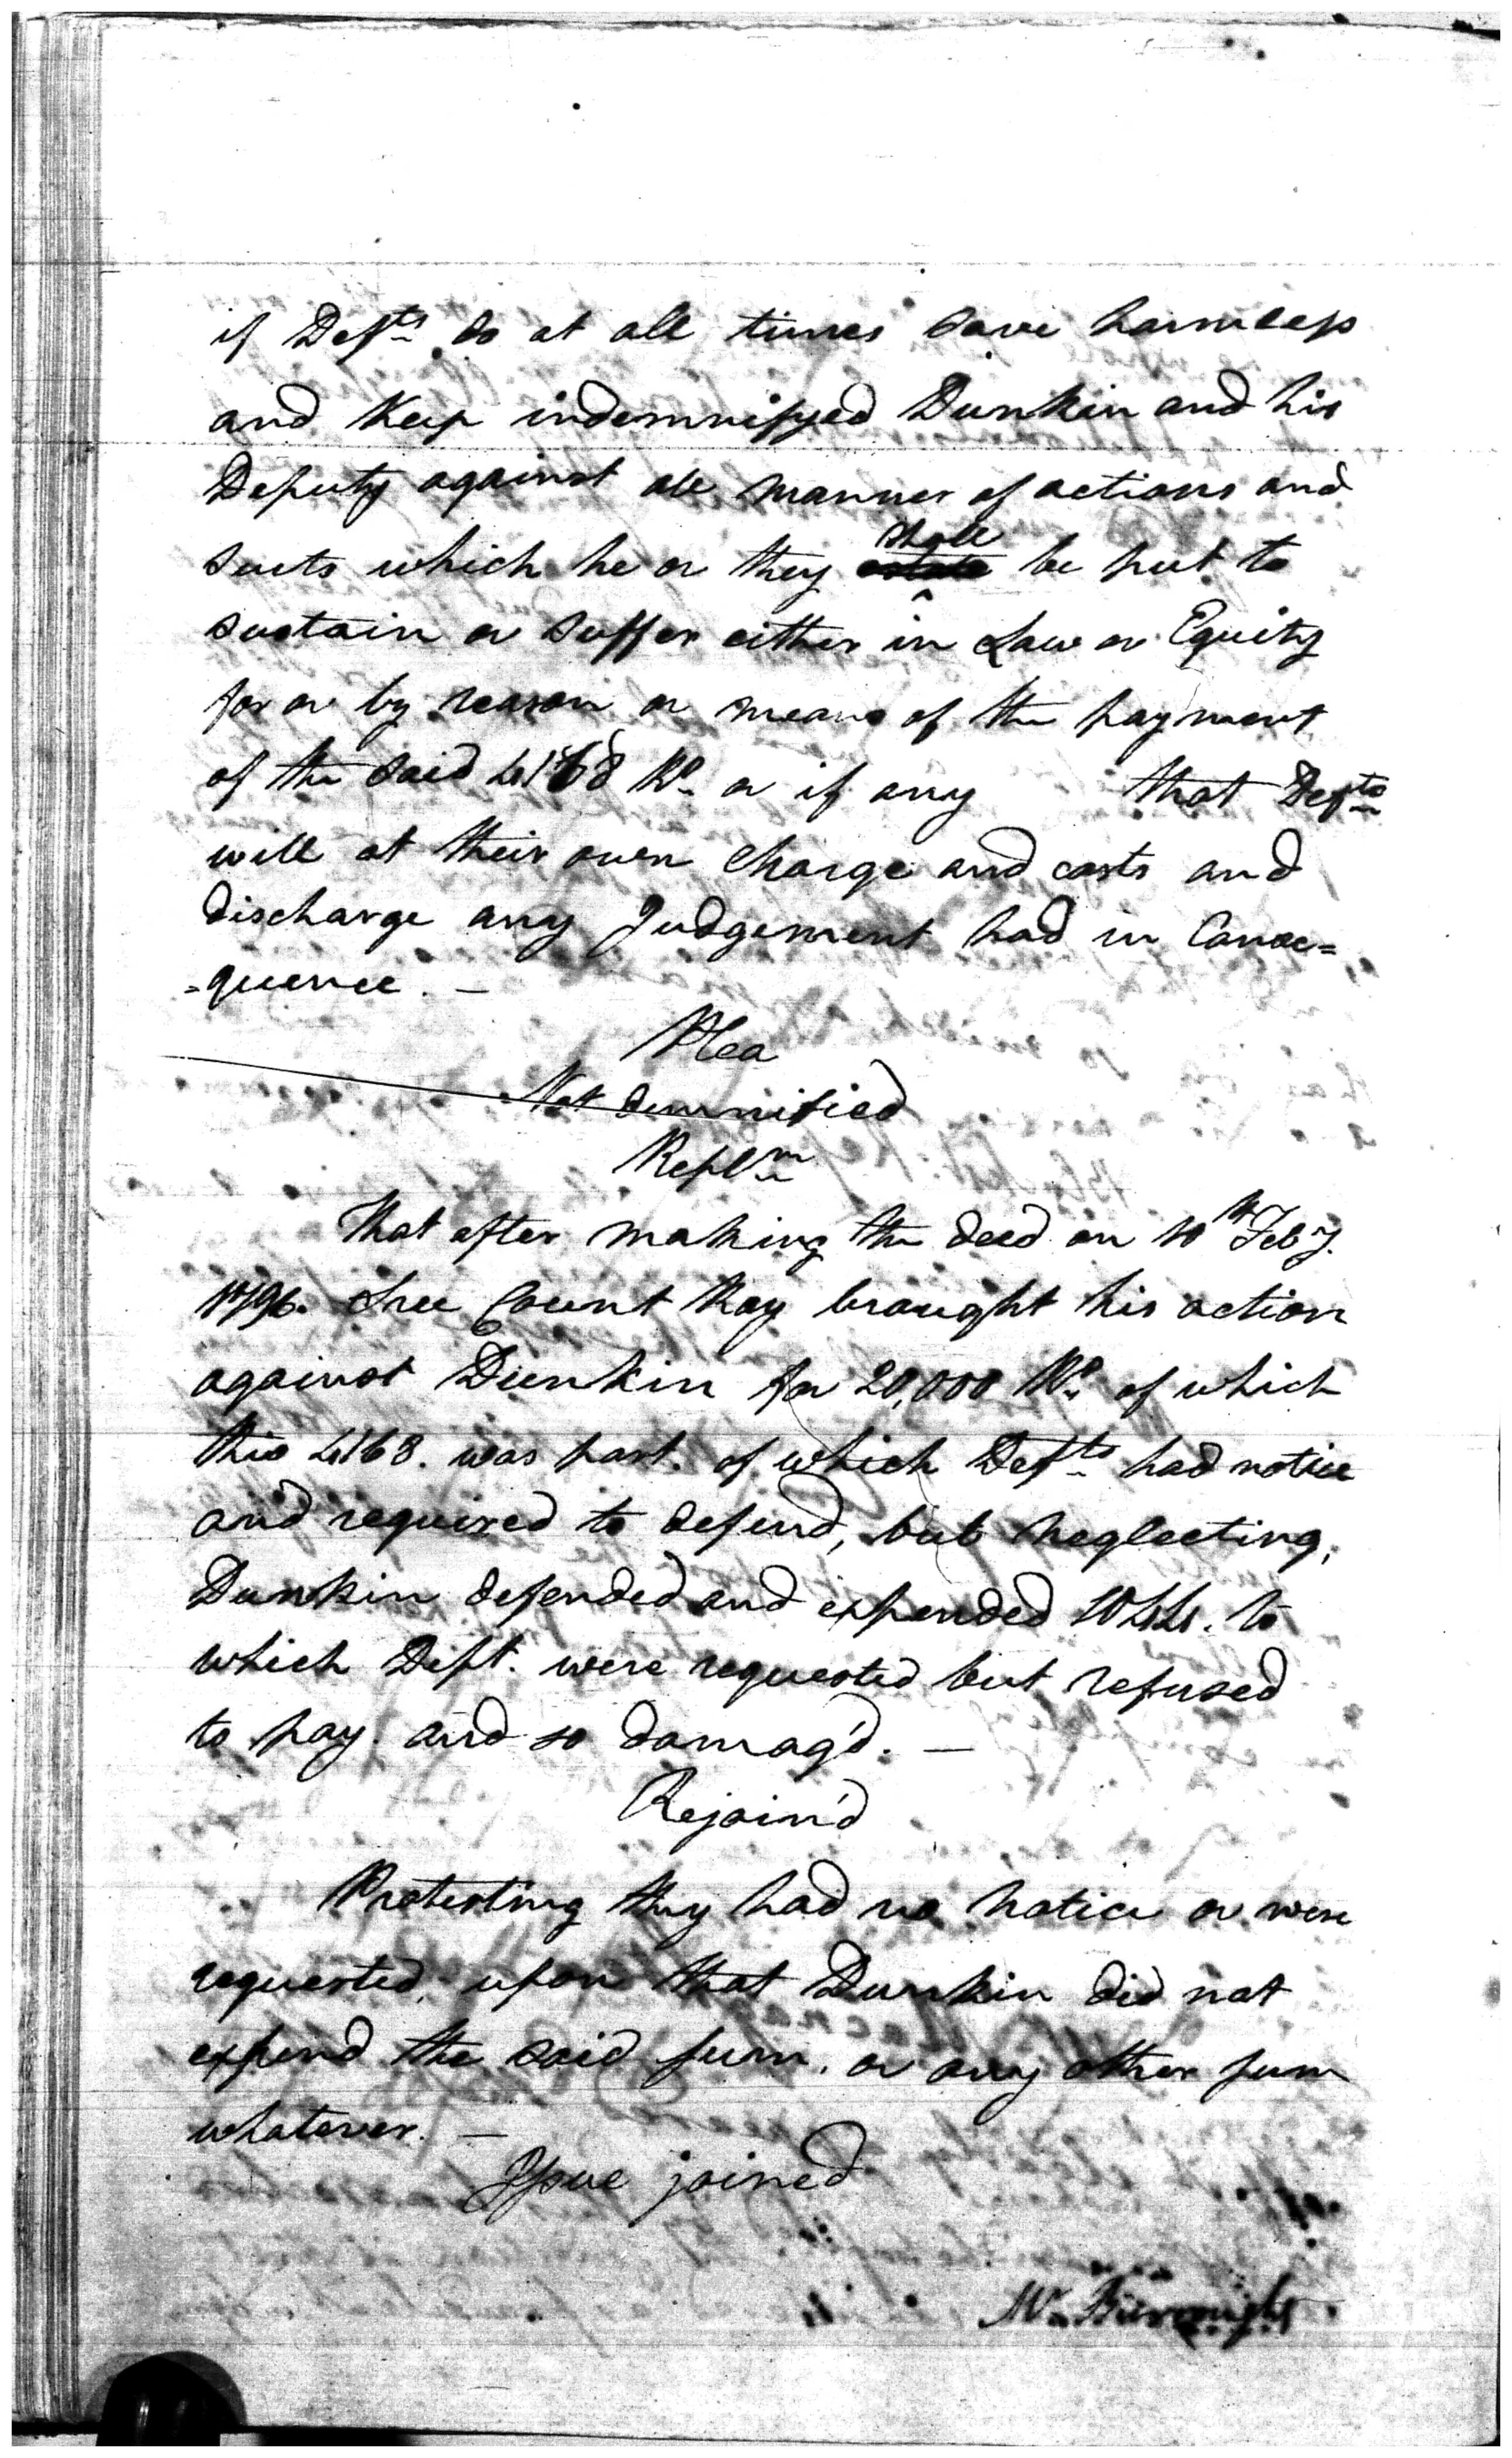 if Defts. do at all times save harmless
and Keep indemnifyed Dunkin and his
Deputy against all manner of actions and
suits which he or they shall be put to
sustain or suffer either in Law or Equity
for or by reason or means of the payment
of the said 4168 Rs. or if any that Defts.
will at their own Charge and costs and
discharge any Judgement had in Conse=
=quence. —
Plea
Not damnified
Repln.
That after making the deed on 10th Feby.
1796. Sree Count Roy brought his action
against Dunkin for 20,000 Rs. of which
this 4168. was part. of which Defts. had notice
and required to defend, but neglecting,
Dunkin defended and expended 1044. to
which Deft. were requested but refused
to pay. and so damag'd. —
Rejoin'd
Protesting they had no notice or were
requested, upon that Dunkin did not
expend the said sum, or any other sum
whatever. —
Issue joined
Mr. Burroughs